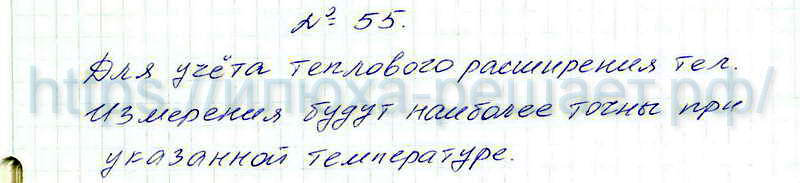 № 55.
Для учёта теплового расширения тел.
https://илюха-решает.рф/
Измерения будут наиболее точны при
указанной температуре.